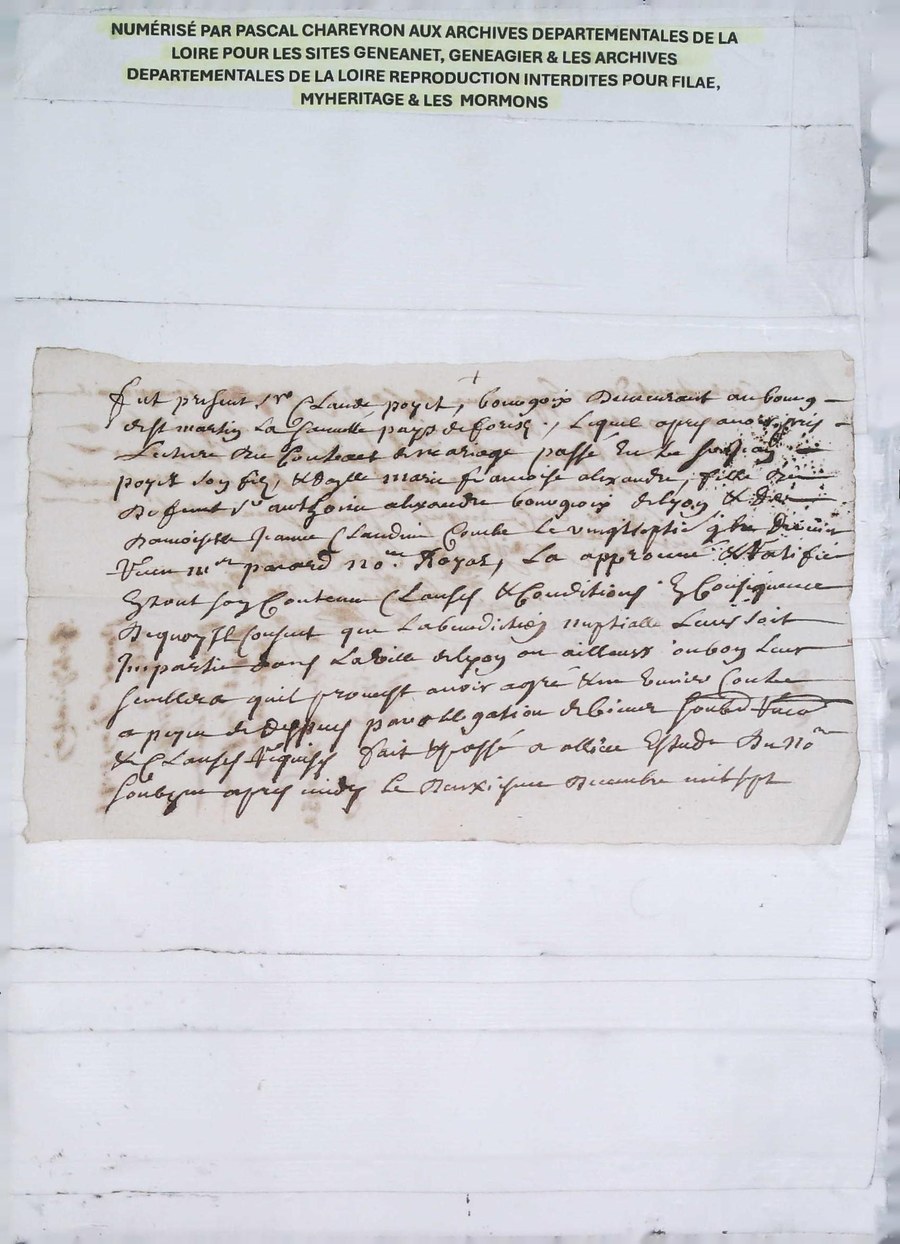 NUMÉRISÉ PAR PASCAL CHAREYRON AUX ARCHIVES DEPARTEMENTALES DE LA
LOIRE POUR LES SITES GENEANET, GENEAGIER & LES ARCHIVES
DEPARTEMENTALES DE LA LOIRE REPRODUCTION INTERDITES POUR FILAE,
MYHERITAGE & LES MORMONS
Fut present Sr Claude poyet, bourgois demeurant au bourg
de st martin la pays de forest, lequel apres avoir pris
Lecture du Contract de mariage passé entre
poyet son filz, & dlle marie francoise alexandre, fille
defunt Sr anthoine alexandre bourgois de lyon & de
damoiselle Jeanne Claudine Combe le vingtseptie 9bre dernier
par no.re Royal, La approuvé & Ratifié
En tout son Contenu Clauses & Conditions En Consequence
dequoy Il Consent que La benediction nuptialle Leurs soit
Impartie dans La ville de lyon ou ailleurs ou bon Leur
semblera quil promest avoir agré & ne venir Contre
a peyne de Despens par obligation de biens
& Clauses Requises fait & passé a Estude du no.re
soubzne apres midy le deuxiesme decembre mil sept